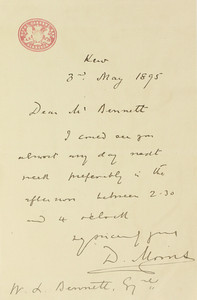 Kew
3rd May 1895
Dear Mr Bennett
I could see you
almost any day next
week preferably in the
afternoon between 2-30
and 4 o'clock
yours
D. Morris
W. L. Bennett, Esq